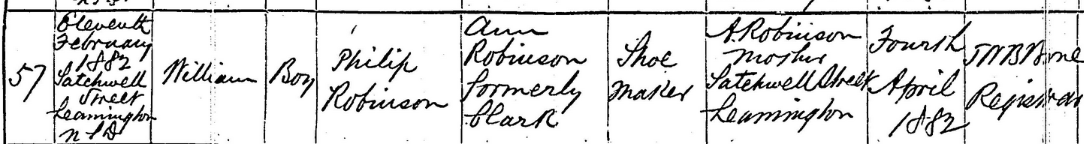 57
Eleventh
February
1882
Satchwell
Street
Leamington
William
Boy
Philip
Robinson
Ann
Robinson
formerly
Clark
Shoe
Maker
A. Robinson
Mother
Satchwell Street
Leamington
Fourth
April
1882
Registrar